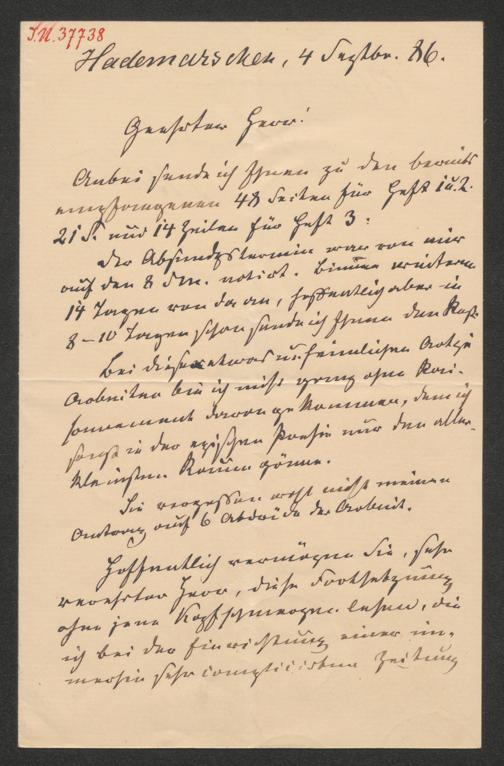 I.N. 37738
Hademarschen, 4 Septbr. 86.
Geehrter Herr!
Anbei sende ich Ihnen zu den bereits
empfangenen 48 Seiten für Heft 1 u. 2.
21 S. und 14 Zeilen für Heft 3.
Der Absendgstermin war von mir
auf den 8 d. M. notirt. Binnen weiteren
14 Tagen von da an, hoffentlich aber in
8–10 Tagen schon sende ich Ihnen den Rest.
Bei dieser etwas unheimlichen
Arbeiten bin ich nicht ganz ohne Rai-
sonnement davon gekommen, dem ich
sonst in der epischen Poesie nur den aller-
kleinsten Raum gönne.
Sie vergessen wohl nicht meinen
Antrag auf 6 Abdrücke der Arbeit.
Hoffentlich vermögen Sie, sehr
verehrter Herr, diese Fortsetzung
ohne jene Kopfschmerzen lesen, die
ich bei der Einrichtung einer im-
merhin sehr complicirten Zeitung